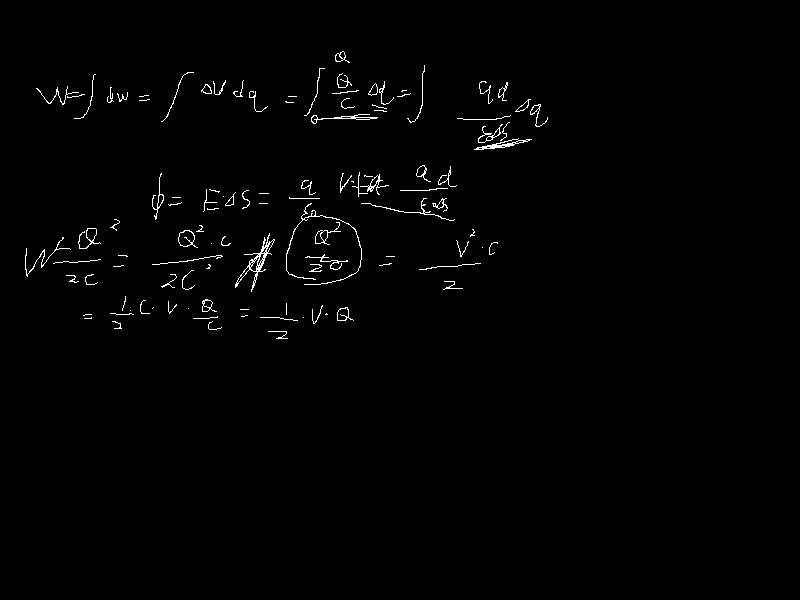 W = ∫ dw = ∫ ΔV dq = ∫₀^Q Q/C Δq = ∫ qd/ε₀ΔS Δq
φ = EΔS = q/ε₀ V=Ed qd/ε₀ΔS
W = Q²/2C = Q²·C/2C² Q²/2σ = V²·C/2
= 1/2 C·V·Q/C = 1/2·V·Q